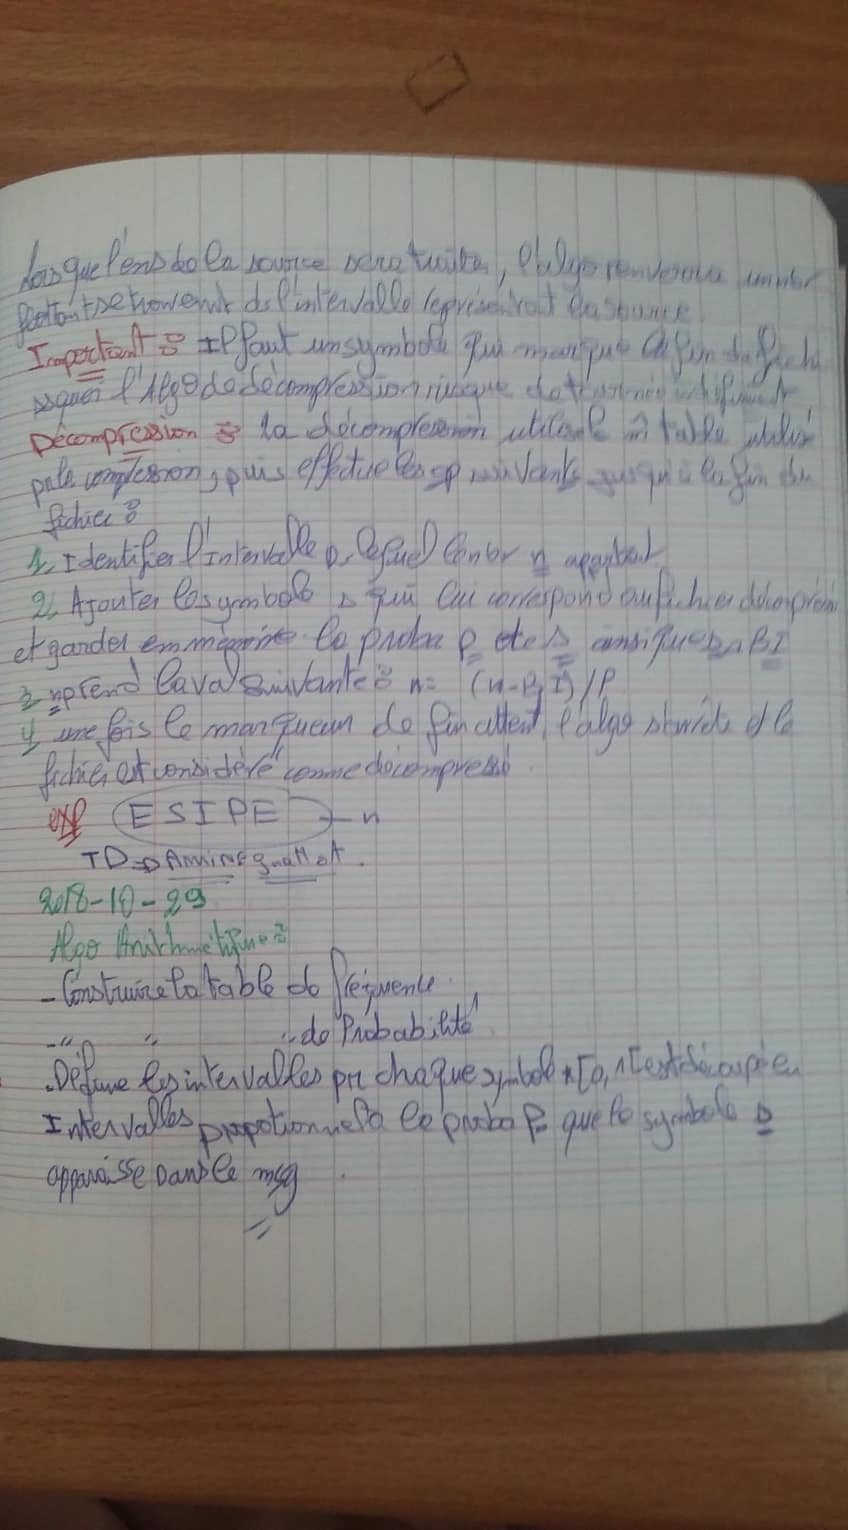 Lorsque l'ens de la source sera traitée, l'algo renverra un nbr
flottant se trouvant ds l'intervalle représentant la source
Important : Il faut un symbole qui marque la fin du fichi
sqnon l'Algo de décompression risque de
Décompression : la décompression utilise la m̂ table utilisé
par la compression, puis effectue les op suivants jusqu'à la fin du
fichier :
1, Identifier l'Intervalle ds lequel le nbr n appartient
2, Ajouter le symbole s qui lui correspond au fichier décomprimé
et garder en mémoire la proba p de s ainsi que sa BI
3, n prend la val Suivante : n = (n-BI)/P
4, une fois le marqueur de fin atteint, l'algo s'arrête et le
fichier est considéré comme décompressé.
exp ESIPE → n
TD → Amine
2018-10-29
Algo Arithmétique :
- Construire la table de fréquence.
- " " " de Probabilité
. Définir les intervalles pr chaque symbole [0, 1[ est découpé en
Intervalles propotionnel à la proba P que le symbole s
apparaisse Dans le msg